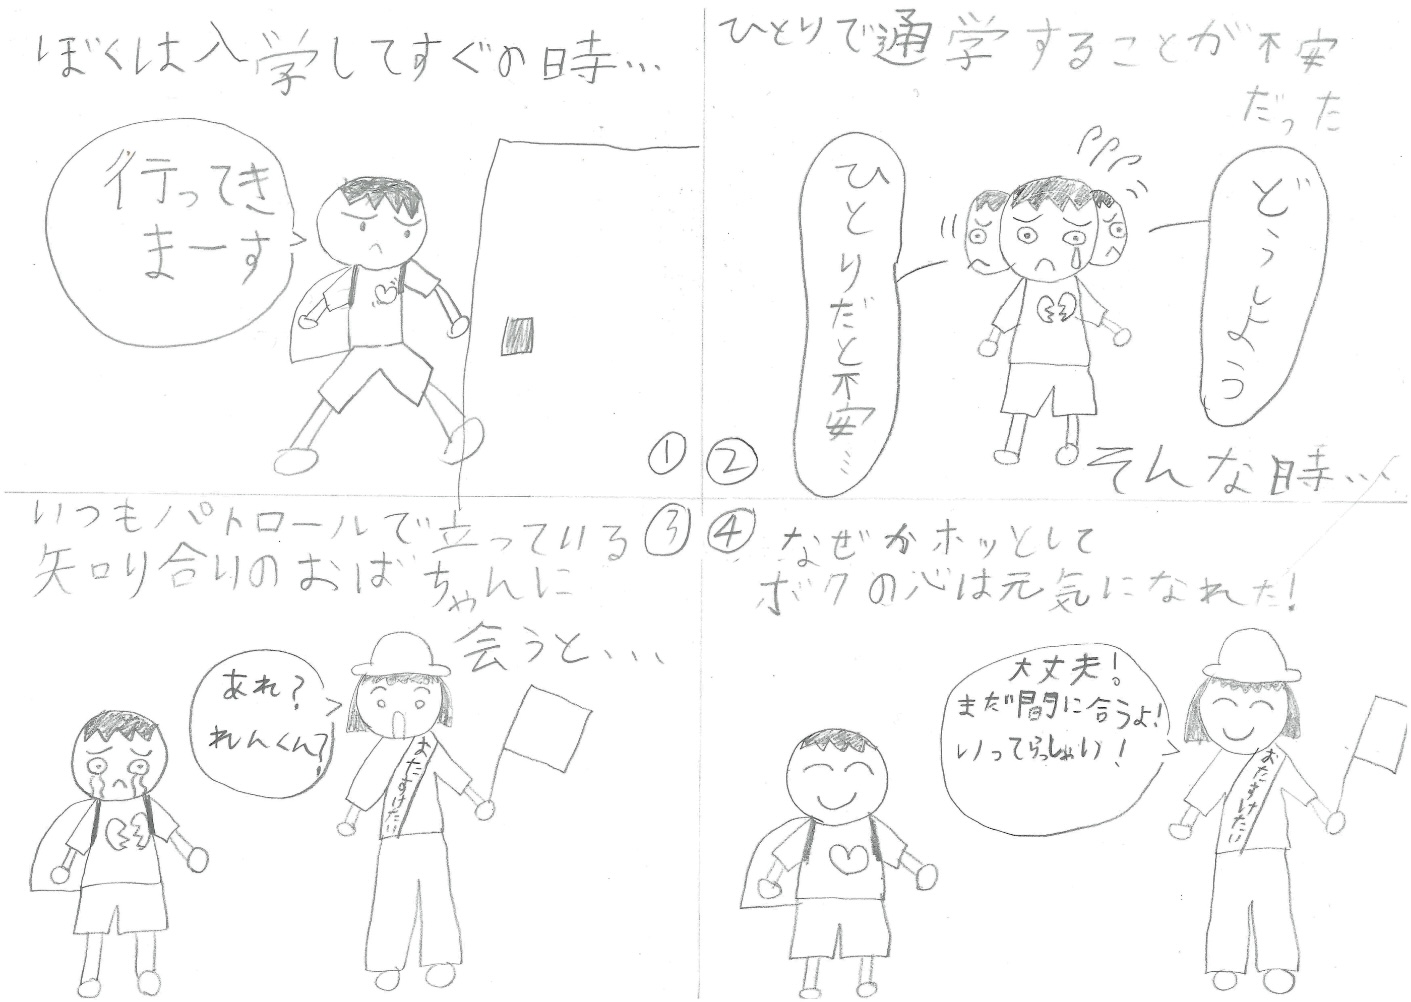 ぼくは入学してすぐの時…
行ってき
まーす
①
ひとりで通学することが不安
だった
ひとりだと不安…
どうしよう
そんな時…
②
いつもパトロールで立っている
知り合りのおばちゃんに
会うと、、、
③
あれ?
れんくん?
おたすけたい
④
なぜかホッとして
ボクの心は元気になれた!
大丈夫!
まだ間に合うよ!
いってらっしゃい!
おたすけたい